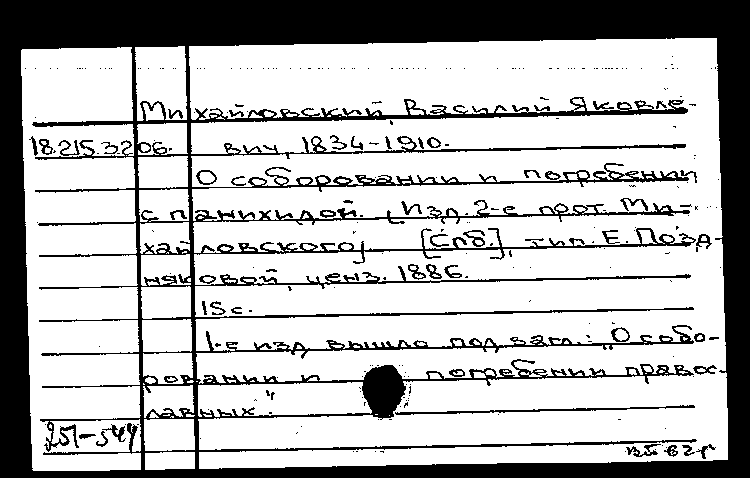 Михайловский, Василий Яковле-
18.215.3206. вич, 1834-1910.
О соборовании и погребении
с панихидой. [Изд. 2-е прот. Ми-
хайловского]. [Спб.], тип. Е. Позд-
няковой, ценз. 1886.
15с.
1-е изд вышло под загл.: "О собо-
ровании и погребении правос-
лавных".
251-544